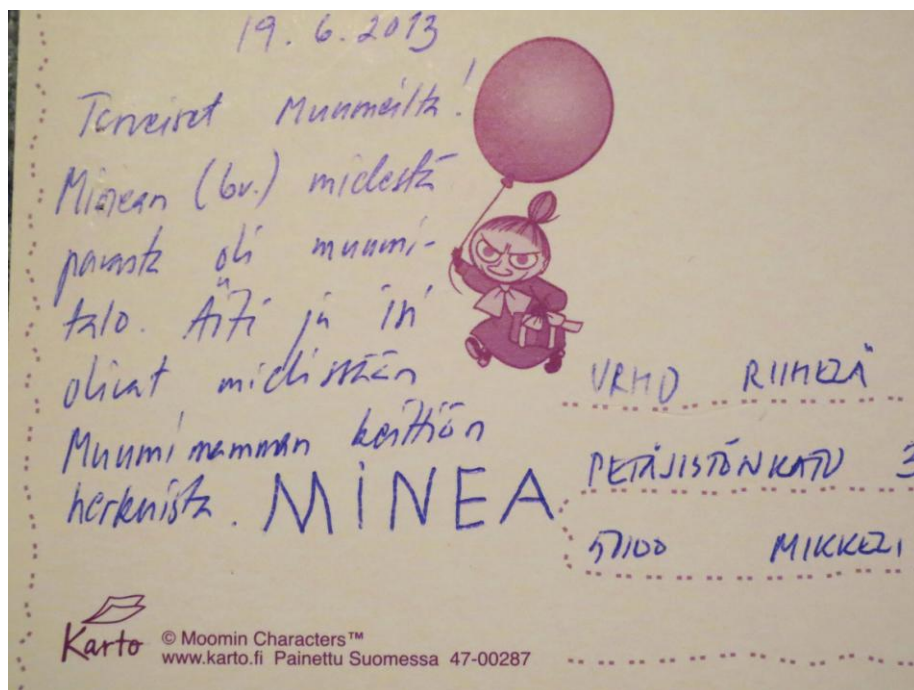 19.6.2013
Terveiset Muumeilta!
Minean (6v.) mielestä
parasta oli muumi-
talo. Äiti ja isi
olivat mielissään
Muumimamman keittiön
herkuista. MINEA
URHO RIIHELÄ
PETÄJISTÖNKATU 3
57100 MIKKELI
Karto
© Moomin Characters™
www.karto.fi Painettu Suomessa 47-00287